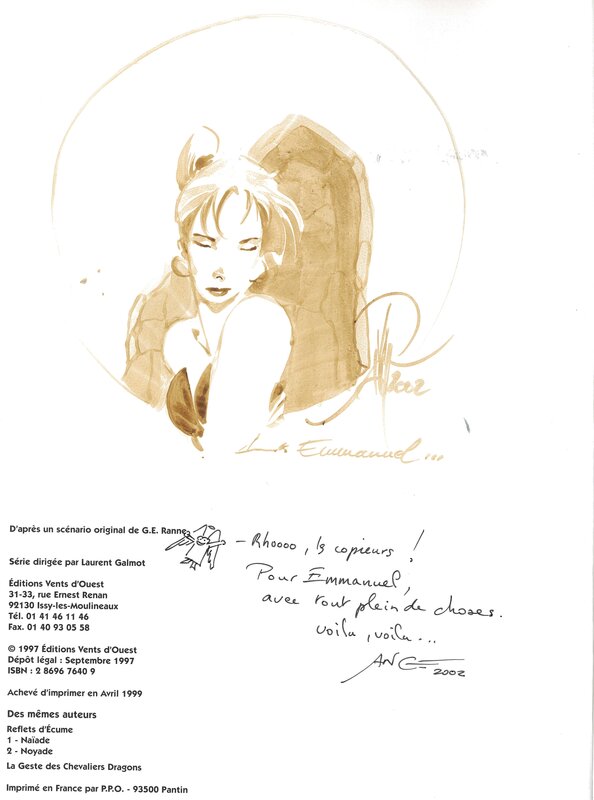 2002
à Emmanuel ...
D'après un scénario original de G.E. Ranne
Série dirigée par Laurent Galmot
Éditions Vents d'Ouest
31-33, rue Ernest Renan
92130 Issy-les-Moulineaux
Tél. 01 41 46 11 46
Fax. 01 40 93 05 58
© 1997 Éditions Vents d'Ouest
Dépôt légal : Septembre 1997
ISBN : 2 8696 7640 9
Achevé d'imprimer en Avril 1999
Des mêmes auteurs
Reflets d'Écume
1 - Naïade
2 - Noyade
La Geste des Chevaliers Dragons
Imprimé en France par P.P.O. - 93500 Pantin
- Rhoooo, ls copieurs !
Pour Emmanuel,
avec tout plein de choses.
voila, voila...
ANGE 2002